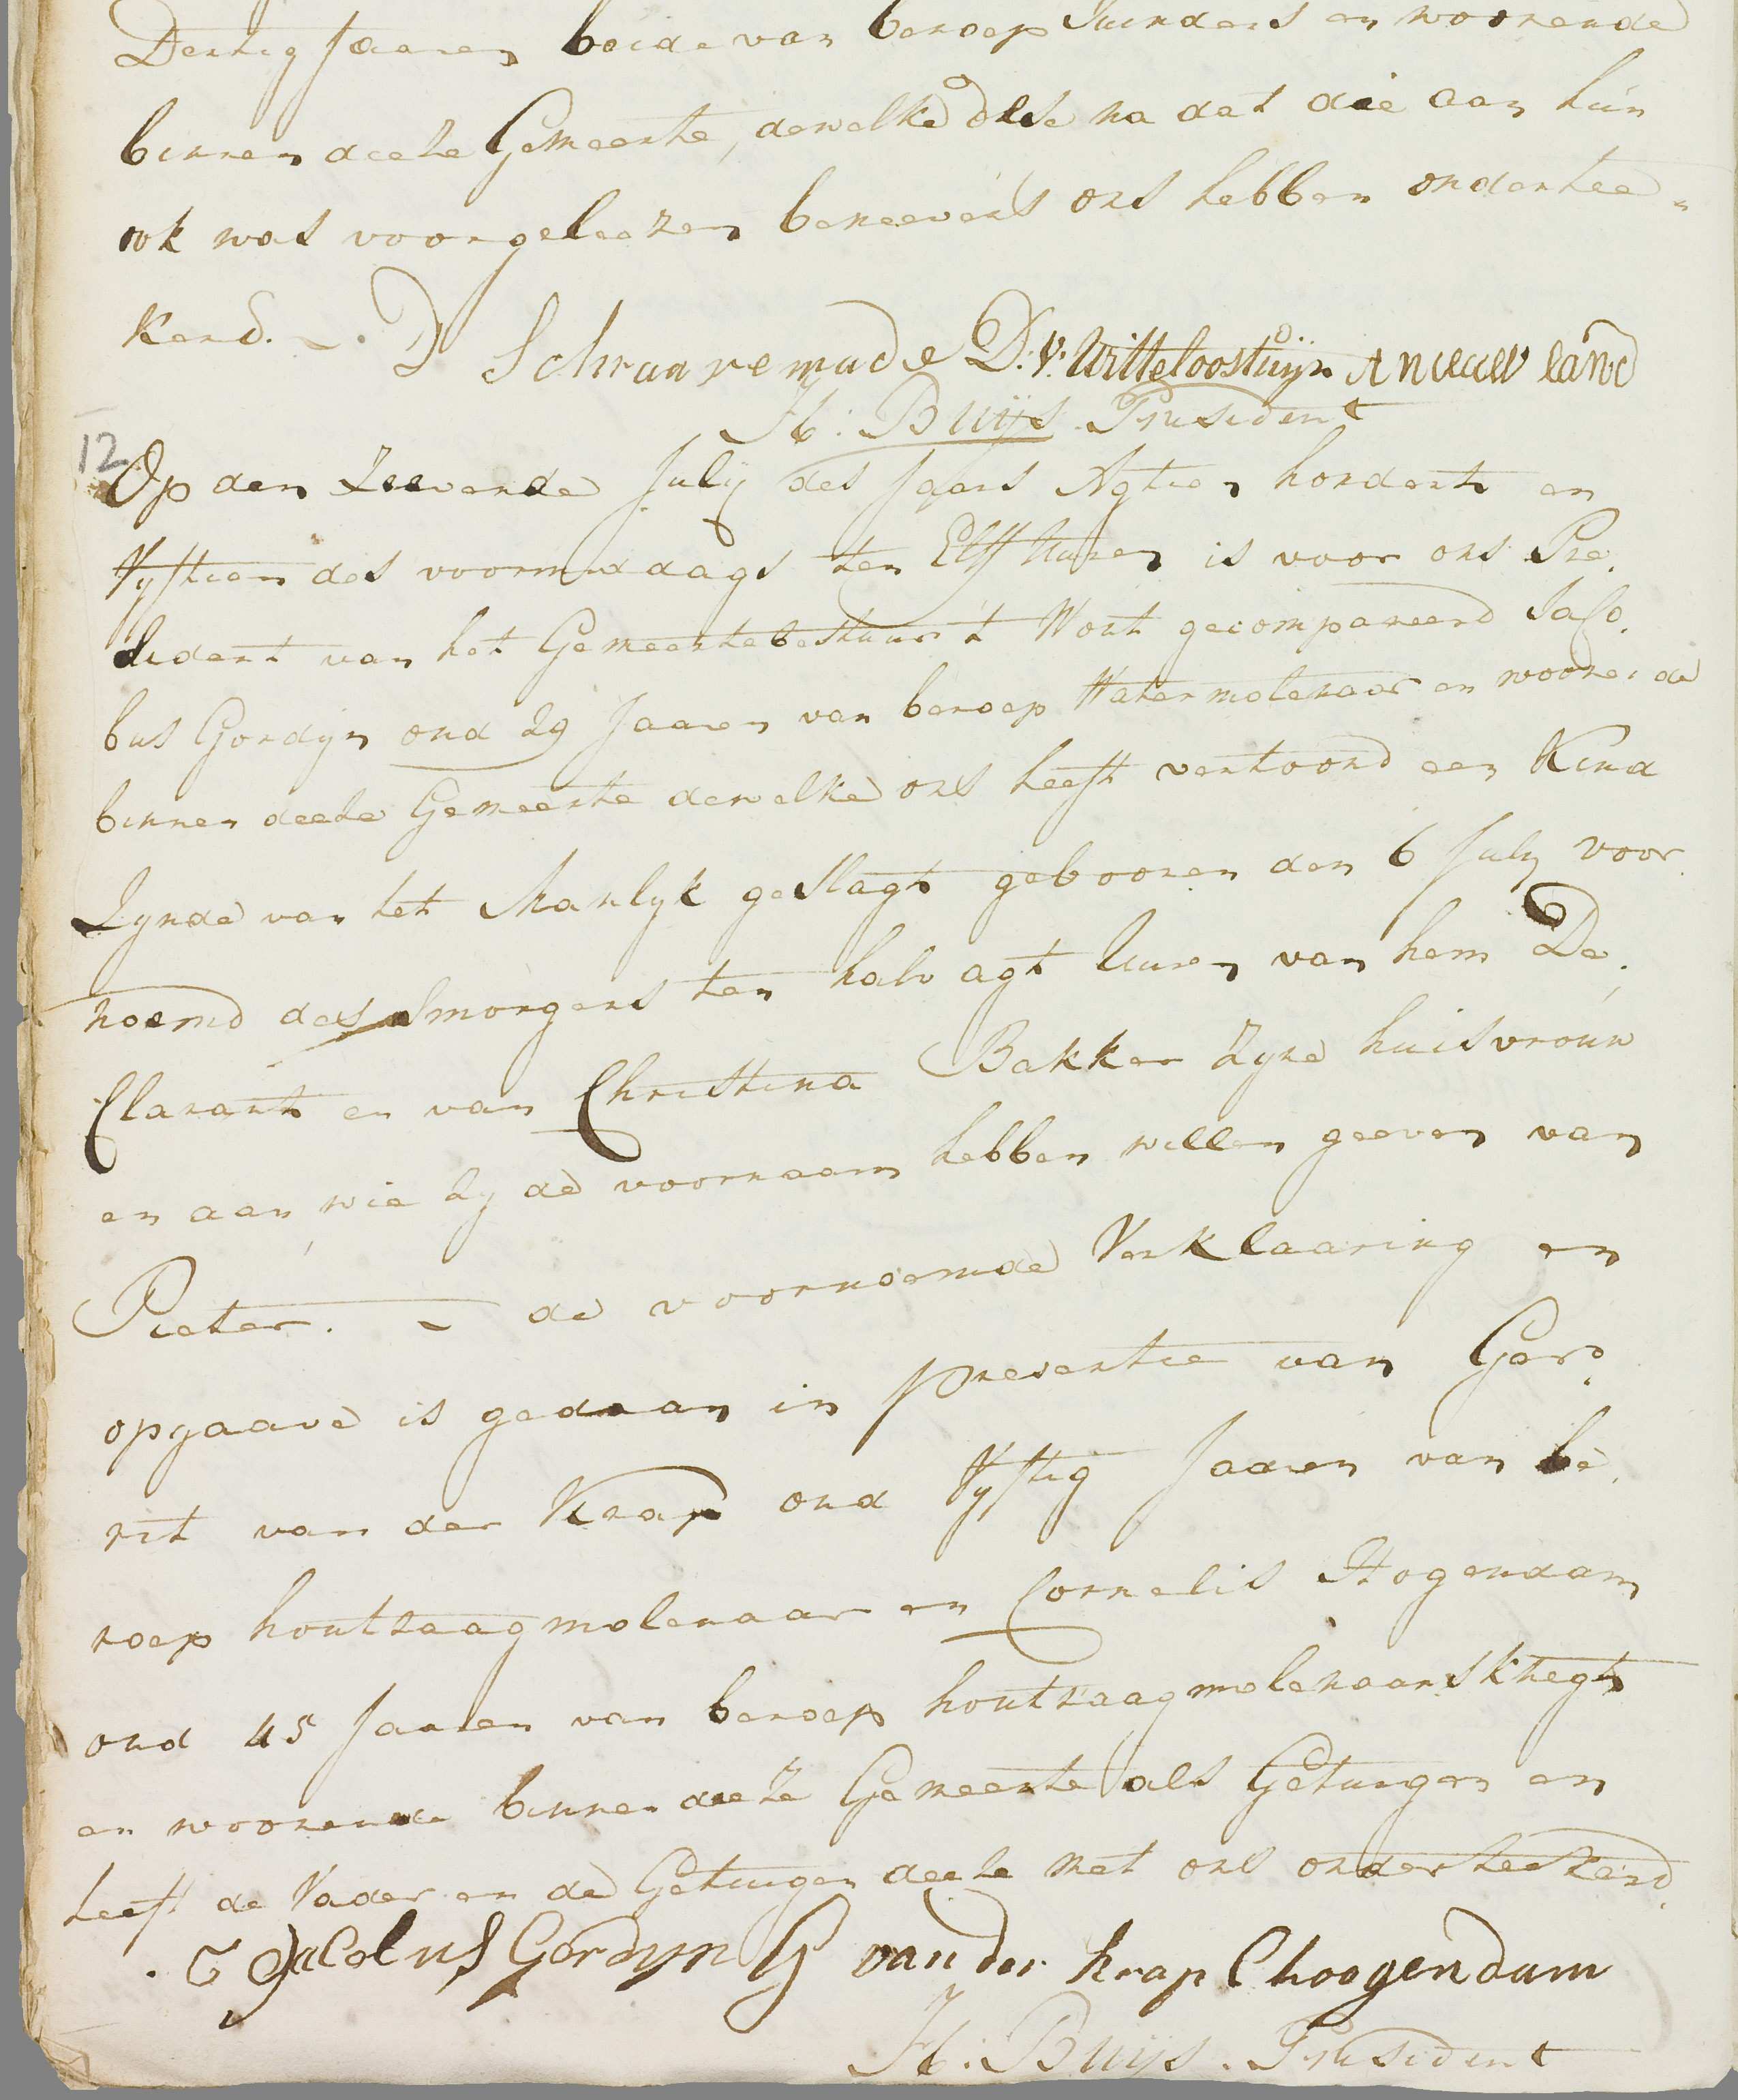 Dertig Jaaren beide van beroep Tuinders en woonende
binnen deeze Gemeente, dewelke dese na dat die aan hún
ook was voorgeleezen beneevens ons hebben ondertee„
kend. D Schraavemade D. V. Witteloostuijn A nieuw land
H: Buijs. President
12
Op den Zeevende July des Jaars Agtien hondert en
Vyftien des voormiddaags ten Elff Uuren is voor ons Pre„
sident van het Gemeentebestuur 't Wout gecompareerd Jaco„
bus Gordyn oud 29 Jaaren van beroep Watermolenaar en woonende
binnen deeze Gemeente dewelke ons heeft vertoond een Kind
Zynde van het Manlyk geslagt gebooren den 6 July voor„
noemd des smorgens ten halv agt Uuren van hem De„
Clarant en van Christina Bakker Zyne huisvrouw
en aan wie Zy de voornaam hebben willen geeven van
Pieter. – de voornoemde Verklaaring en
opgaave is gedaan in presentie van Ger„
rit van der Knap oud Vyftig Jaaren van be„
roep houtzaagmolenaar en Cornelis Hogendam
oud 45 Jaaren van beroep houtzaagmolenaarsknegt
en woonende binnen deeze Gemeente als Getuigen en
heeft de Vader en de Getuigen deeze met ons onderteekend.
Jacobus Gordyn G van der knap C hoogendam
H: Buijs. President